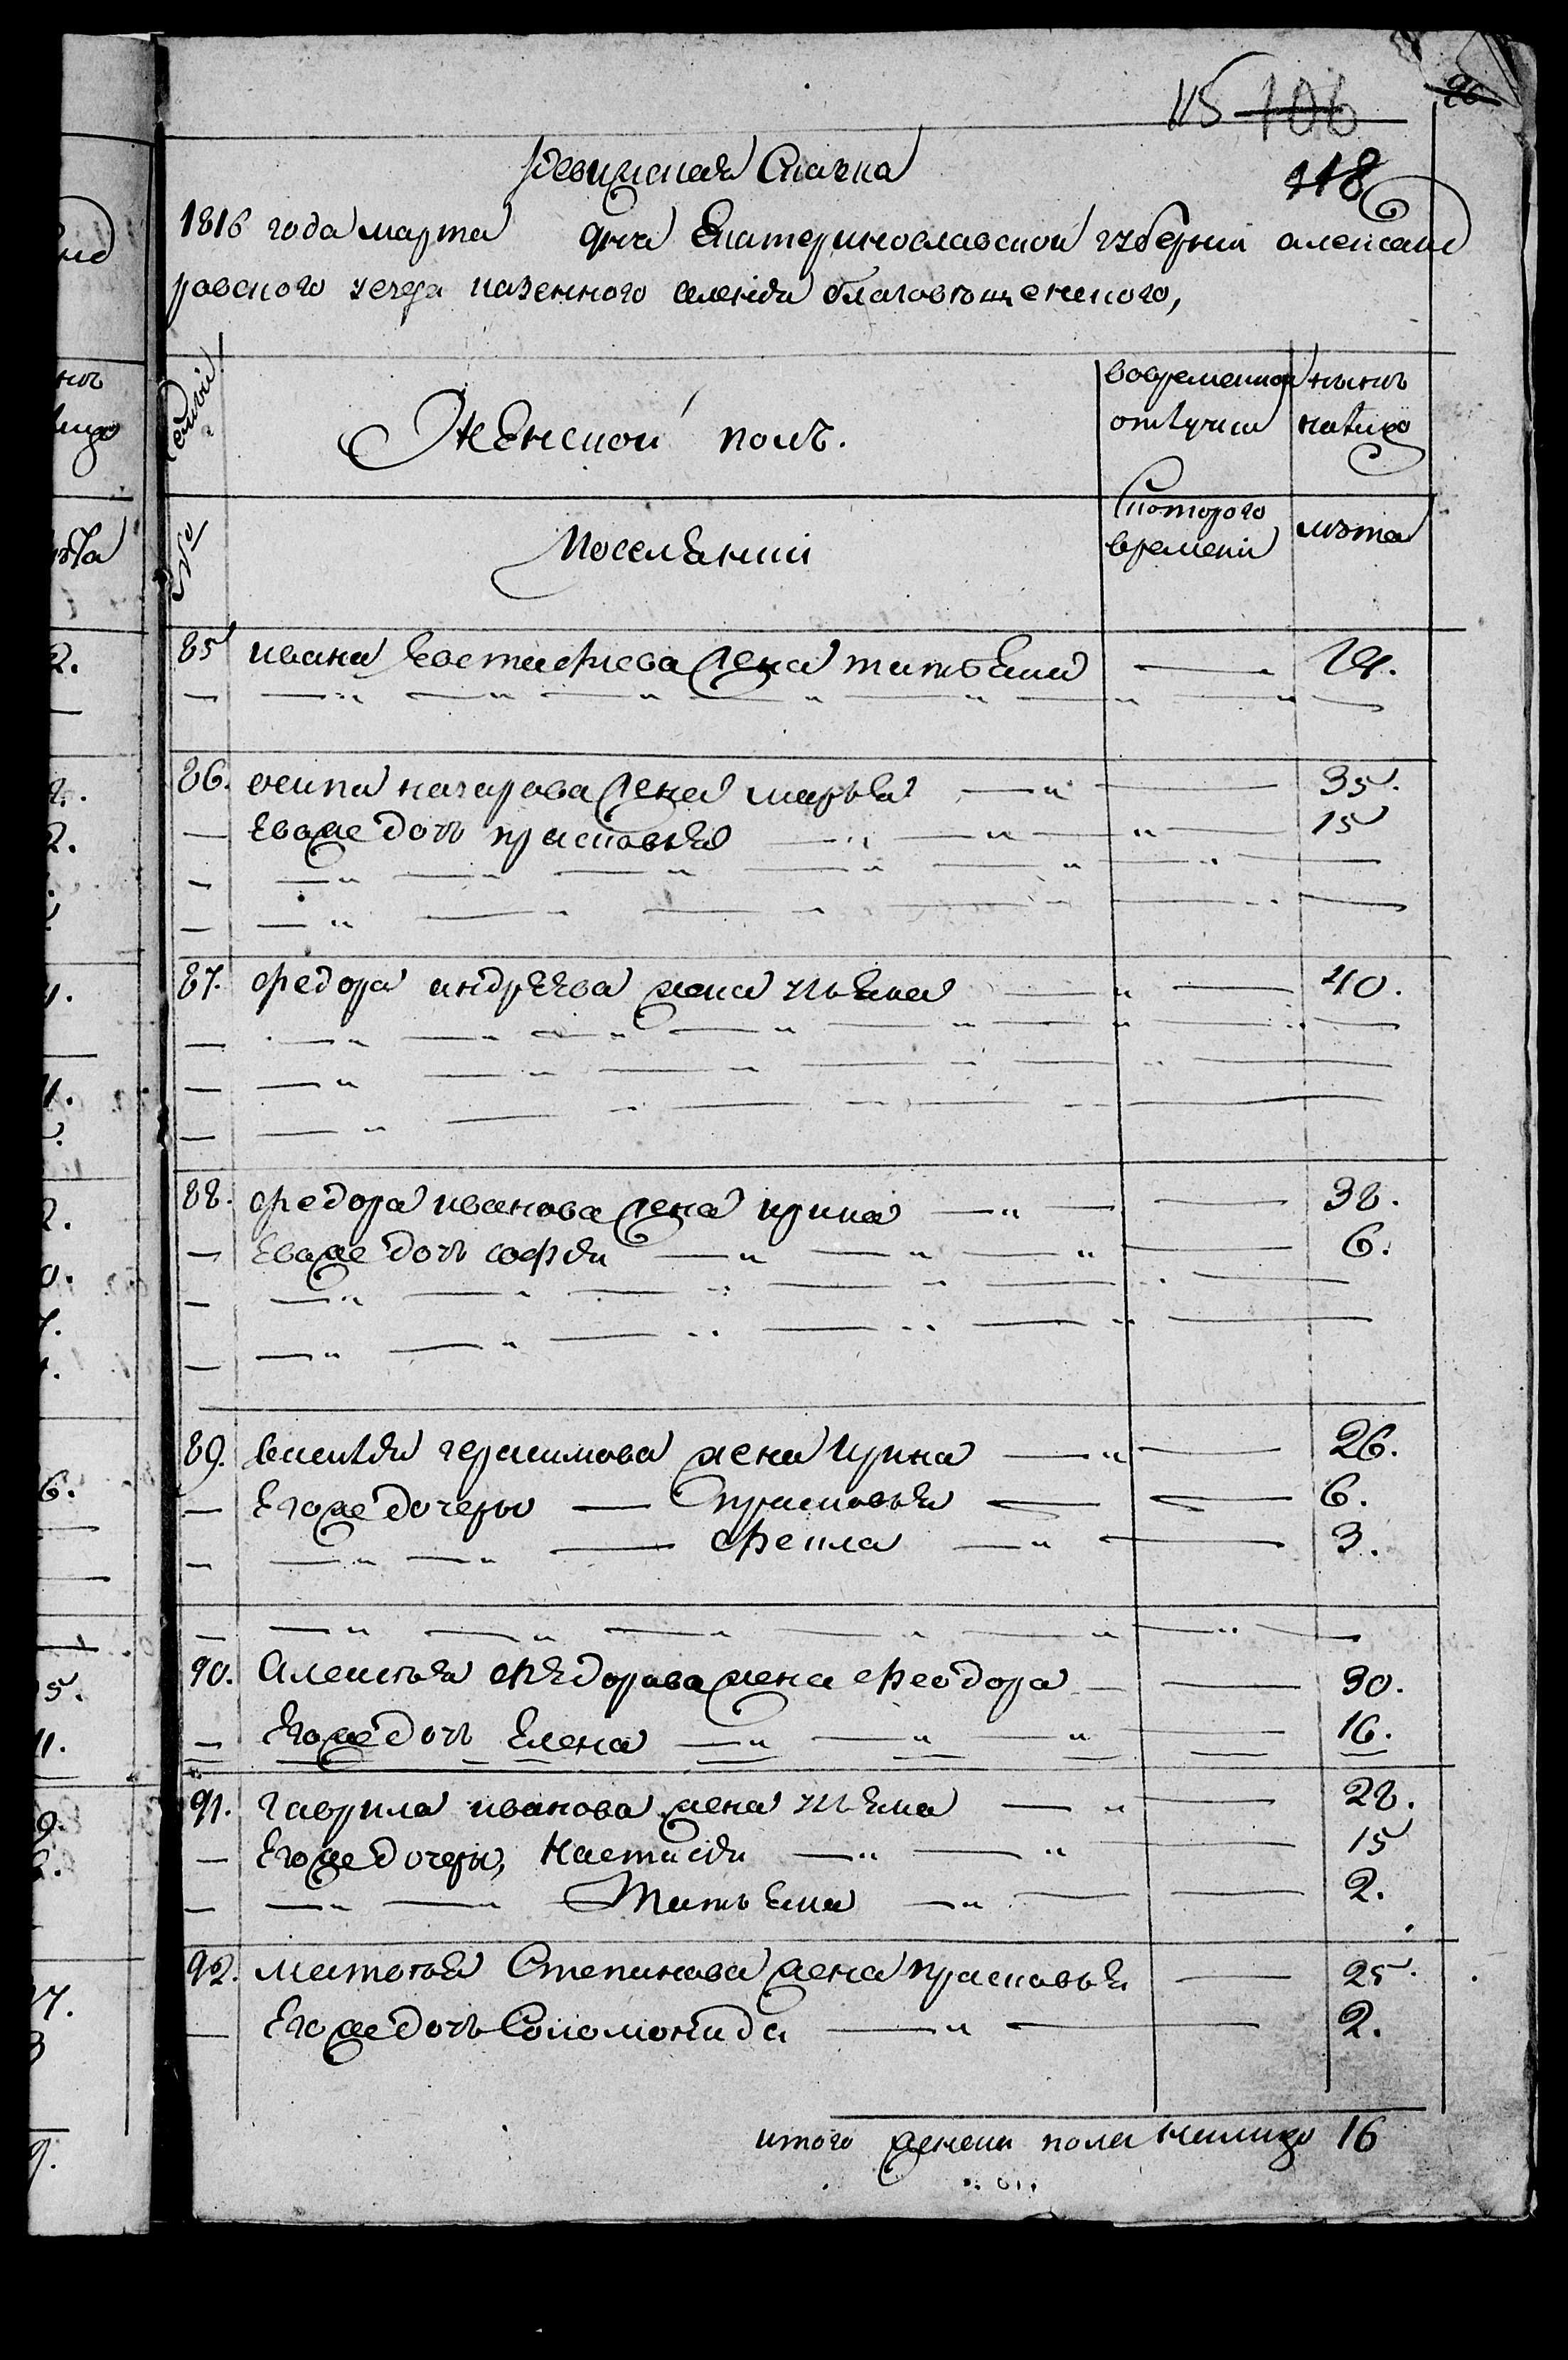 115 106
96
118
Ревижская Скаска
1816 года марта дня Екатеринославской губернии александ
ровского уезда казенного селения благовѣщенского,
Семьи
Женской полъ.
вовременной отлучки
нынѣ налицо
№
Поселянии
Скоторого времени
лѣта
85 ивана Евстафиева жена татьяна 24.
86. осипа назарова жена марья 35.
Евоже дочь прасковья 15
87. федора андреева жена ульяна 40.
88. федора иванова жена ирина 38.
Евоже дочь софия 6.
89. василия герасимова жена Ирина 26.
Егоже дочеры прасковья 6.
фекла 3.
90. Алексѣя федорова жена феодора 30.
Егоже дочь Елена 16.
91. гаврила иванова жена ульяна 28.
Егоже дочеры, Настасия 15
Татьяна 2.
92. матвѣя Степанова жена прасковья 25.
Егоже дочь Соломонида 2.
итого женска пола налицо 16